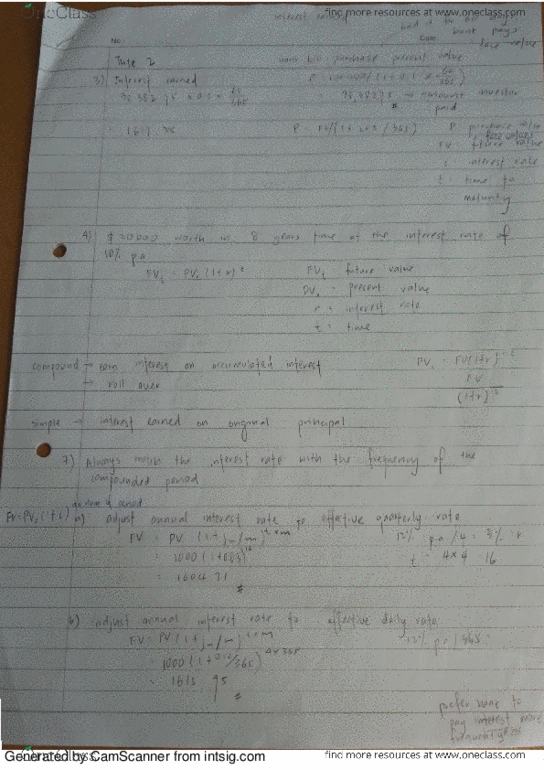 OneClass
find more resources at www.oneclass.com
No
Date
bank pays
face value
Tute 2
bank bill purchase present value
3) Interest earned
96 382 75 × 0.1 × 65/365
→ amount investor
paid
P = FV/(1 + r × t / 365)
P purchase value
FV future value
interest rate
t : time to
maturity
4) $20000 worth in 8 years time at the interest rate of
10% pa
FVt = PV0 (1+r)t
FVt future value
PV0 = present value
r = interest rate
t = time
compound → earn interest on accumulated interest
→ roll over
PV0 = FV(1+r)-t
FV
(1+r)t
simple → interest earned on original principal
7) Always match the interest rate with the frequency of the
compounded period
a) adjust annual interest rate to effective quarterly rate
FV = PV (1+j/m)t×m
12% pa /4 = 3%
= 1000 (1+0.03)16
t = 4×4 16
= 1604 71
b) adjust annual interest rate to effective daily rate
FV = PV (1+j/m)t×m
12% pa / 365
= 1000 (1+0.12/365)4×365
= 1615 95
prefer bank to
pay interest more
Generated by CamScanner from intsig.com
find more resources at www.oneclass.com